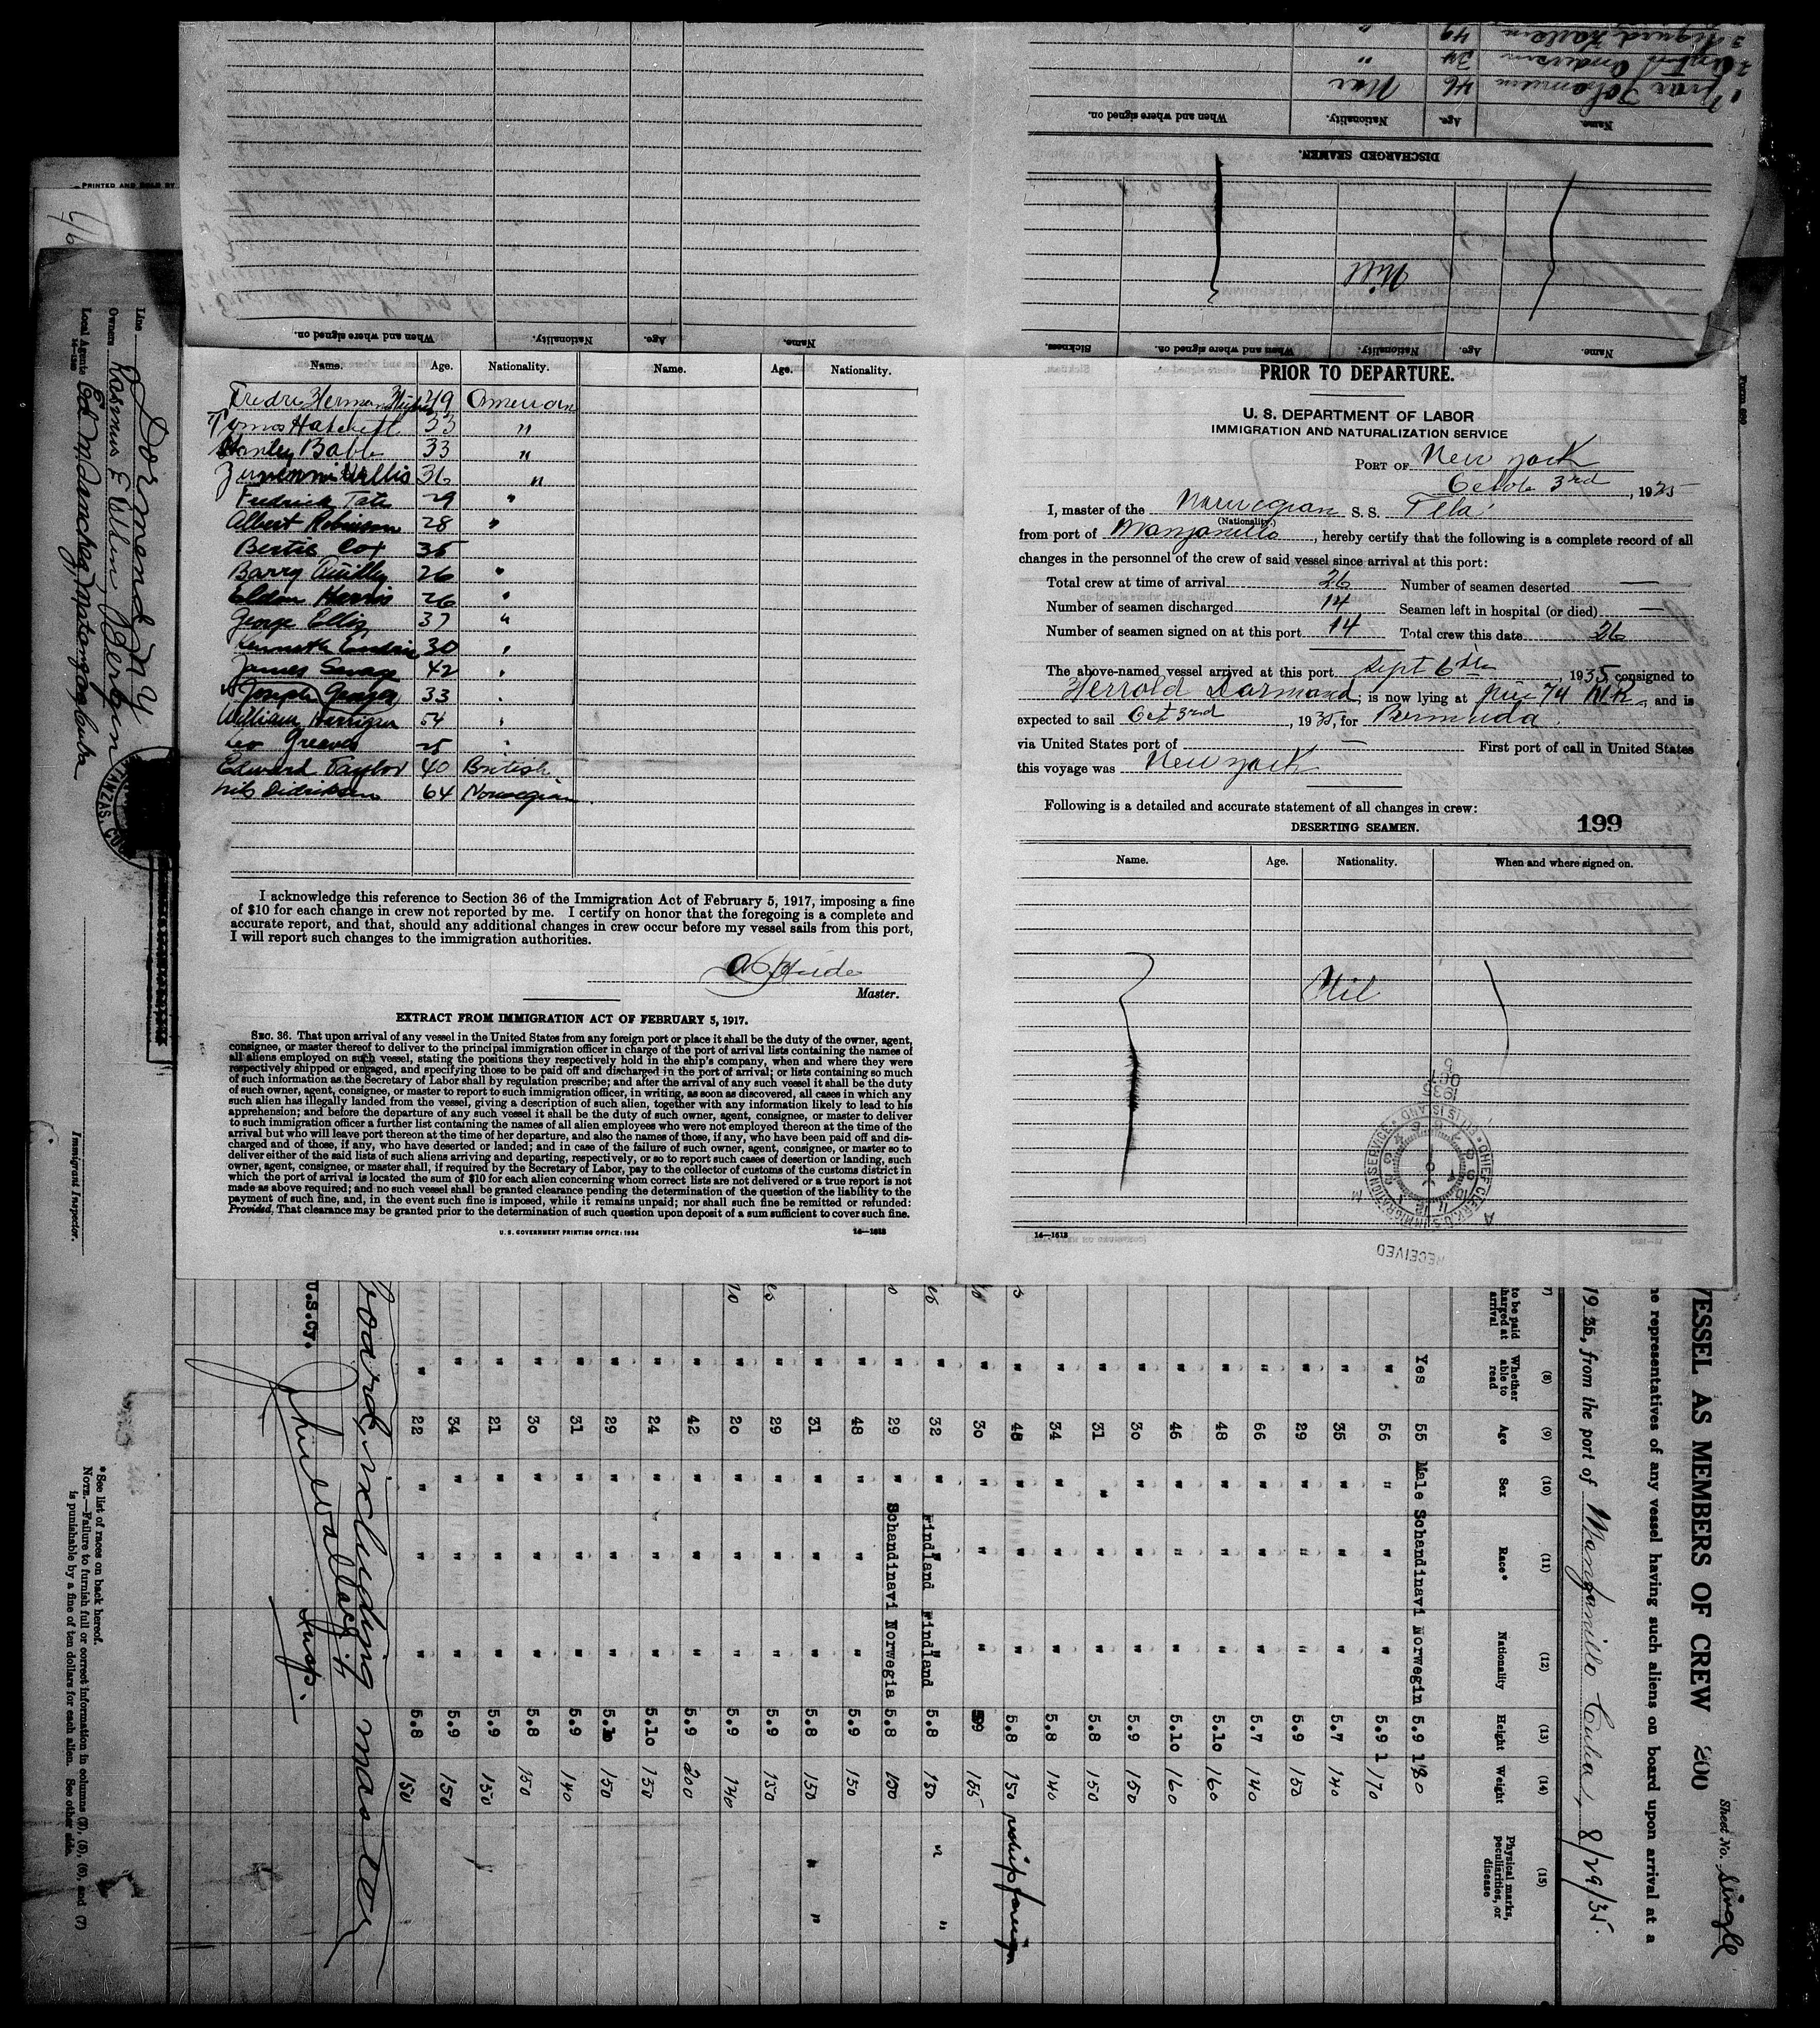 PRINTED AND SOLD BY
Name. Age. Nationality. When and where signed on.
Name. Age. Nationality. Name. Age. Nationality.
49 American
Hatchett 33 "
Stanley Babb 33 "
Willis 36 "
Fredrick Tate 29 "
Albert Robinson 28 "
Bertie Cox 35
Barry 26 "
Eldon Harris 26 "
George Ellis 37 "
Kenneth 30 "
James Savage 42 "
Joseph 33 "
William Harrigan 54 "
Leo Greaves 25 "
Edward Taylor 40 British
Nils Didriksen 64 Norwegian
I acknowledge this reference to Section 36 of the Immigration Act of February 5, 1917, imposing a fine
of $10 for each change in crew not reported by me. I certify on honor that the foregoing is a complete and
accurate report, and that, should any additional changes in crew occur before my vessel sails from this port,
I will report such changes to the immigration authorities.
Master.
EXTRACT FROM IMMIGRATION ACT OF FEBRUARY 5, 1917.
SEC. 36. That upon arrival of any vessel in the United States from any foreign port or place it shall be the duty of the owner, agent,
consignee, or master thereof to deliver to the principal immigration officer in charge of the port of arrival lists containing the names of
all aliens employed on such vessel, stating the positions they respectively hold in the ship's company, when and where they were
respectively shipped or engaged, and specifying those to be paid off and discharged in the port of arrival; or lists containing so much
of such information as the Secretary of Labor shall by regulation prescribe; and after the arrival of any such vessel it shall be the duty
of such owner, agent, consignee, or master to report to such immigration officer, in writing, as soon as discovered, all cases in which any
such alien has illegally landed from the vessel, giving a description of such alien, together with any information likely to lead to his
apprehension; and before the departure of any such vessel it shall be the duty of such owner, agent, consignee, or master to deliver
to such immigration officer a further list containing the names of all alien employees who were not employed thereon at the time of the
arrival but who will leave port thereon at the time of her departure, and also the names of those, if any, who have been paid off and dis-
charged and of those, if any, who have deserted or landed; and in case of the failure of such owner, agent, consignee, or master so to
deliver either of the said lists of such aliens arriving and departing, respectively, or so to report such cases of desertion or landing, such
owner, agent, consignee, or master shall, if required by the Secretary of Labor, pay to the collector of customs of the customs district in
which the port of arrival is located the sum of $10 for each alien concerning whom correct lists are not delivered or a true report is not
made as above required; and no such vessel shall be granted clearance pending the determination of the question of the liability to the
payment of such fine, and, in the event such fine is imposed, while it remains unpaid; nor shall such fine be remitted or refunded:
Provided, That clearance may be granted prior to the determination of such question upon deposit of a sum sufficient to cover such fine.
U. S. GOVERNMENT PRINTING OFFICE: 1934 14—1613
DISCHARGED SEAMEN.
Name. Age. Nationality. When and where signed on.
1 Ivar Johannesen 46 Nor
2 Andersen 34 "
3 Sigurd 49 "
Name. Age. Nationality. When and where signed on. Sickness.
Nill
PRIOR TO DEPARTURE.
U. S. DEPARTMENT OF LABOR
IMMIGRATION AND NATURALIZATION SERVICE
PORT OF New York
3rd, 1935
I, master of the Norwegian S. S. Tela
(Nationality.)
from port of Manzanillo, hereby certify that the following is a complete record of all
changes in the personnel of the crew of said vessel since arrival at this port:
Total crew at time of arrival 26 Number of seamen deserted —
Number of seamen discharged 14 Seamen left in hospital (or died) —
Number of seamen signed on at this port 14 Total crew this date 26
The above-named vessel arrived at this port Sept 6th, 1935, consigned to
; is now lying at 74 N.R., and is
expected to sail Oct 3rd, 1935, for Bermuda.
via United States port of — First port of call in United States
this voyage was New York
Following is a detailed and accurate statement of all changes in crew:
DESERTING SEAMEN. 199
Name. Age. Nationality. When and where signed on.
Nil
RECEIVED
CHIEF CLERK, U.S. IMMIGRATION SERVICE
ELLIS ISLAND
1935 OCT 5
14—1613
Line
Owners
Local Agents
14—1240
Immigrant Inspector.
Form 680
VESSEL AS MEMBERS OF CREW 200
Sheet No. Single
representatives of any vessel having such aliens on board upon arrival at a
19 35, from the port of Manzanillo Cuba, 8/29/35
(7) (8) (9) (10) (11) (12) (13) (14) (15)
Whether able to read Age Sex Race* Nationality Height Weight Physical marks, peculiarities, or disease
Yes 55 Male Schandinavi Norwegin 5.9 180
" 56 " " " 5.9 170
" 35 " " " 5.7 140
" 29 " " " 5.9 150
" 66 " " " 5.7 140
" 48 " " " 5.10 160
" 46 " " " 5.10 160
" 30 " " " 5.9 150
" 31 " " " 5.8 150
" 34 " " " 5.8 140
" 48 " " " 5.8 150 reship foreign
" 30 " " " 59 155
" 32 " Findland Findland 5.8 150 " "
" 29 " Schandinavi Norwegia 5.8 150
" 48 " " " 5.9 150
" 31 " " " 5.8 150 " "
" 29 " " " 5.9 150
" 20 " " " 5.9 140
" 42 " " " 5.9 200
" 24 " " " 5.10 150
" 29 " " " 5.10 150
" 31 " " " 5.9 140
" 30 " " " 5.8 150
" 21 " " " 5.9 150
" 34 " " " 5.9 150
" 22 " " " 5.8 150
board, including master
U.S.Cy.
Insp.
* See list of races on back hereof.
NOTE.—Failure to furnish full or correct information in columns (3), (5), (6), and (7)
is punishable by a fine of ten dollars for each alien. See other side.